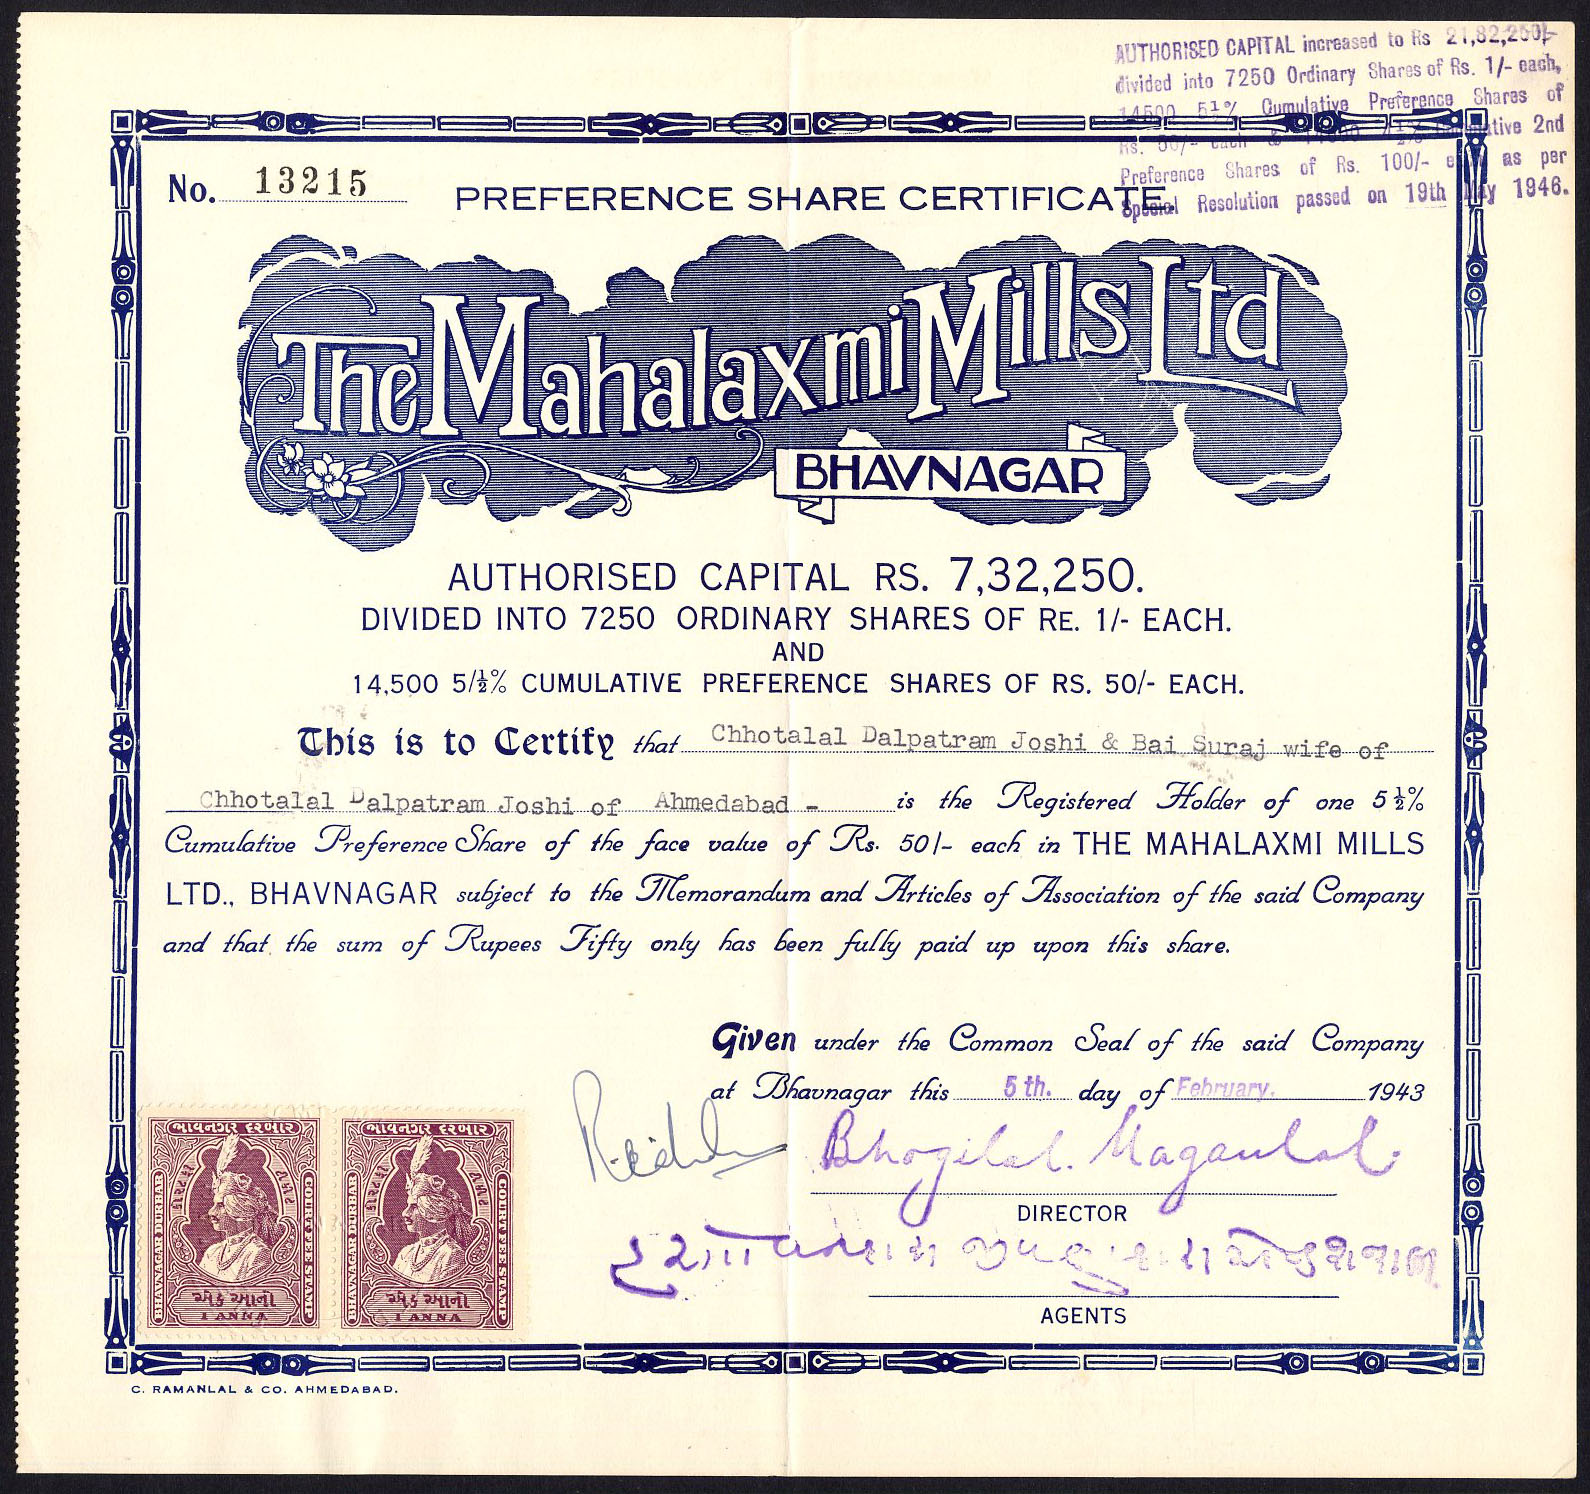 AUTHORISED CAPITAL increased to Rs 21,82,250/-
divided into 7250 Ordinary Shares of Rs. 1/- each,
14500 5½% Cumulative Preference Shares of
Rs. 50/- each & 2nd
Preference Shares of Rs. 100/- as per
Special Resolution passed on 19th May 1946.
No. 13215
PREFERENCE SHARE CERTIFICATE.
The Mahalaxmi Mills Ltd
BHAVNAGAR
AUTHORISED CAPITAL RS. 7,32,250.
DIVIDED INTO 7250 ORDINARY SHARES OF RE. 1/- EACH.
AND
14,500 5/½% CUMULATIVE PREFERENCE SHARES OF RS. 50/- EACH.
This is to Certify that Chhotalal Dalpatram Joshi & Bai Suraj wife of
Chhotalal Dalpatram Joshi of Ahmedabad - is the Registered Holder of one 5½%
Cumulative Preference Share of the face value of Rs. 50/- each in THE MAHALAXMI MILLS
LTD., BHAVNAGAR subject to the Memorandum and Articles of Association of the said Company
and that the sum of Rupees Fifty only has been fully paid up upon this share.
Given under the Common Seal of the said Company
at Bhavnagar this 5th. day of February. 1943
Bhogilal. Maganlal.
DIRECTOR
AGENTS
ભાવનગર દરબાર
BHAVNAGAR DURBAR
COURT FEE STAMP
એક આનો
1 ANNA
ભાવનગર દરબાર
BHAVNAGAR DURBAR
COURT FEE STAMP
એક આનો
1 ANNA
C. RAMANLAL & CO. AHMEDABAD.